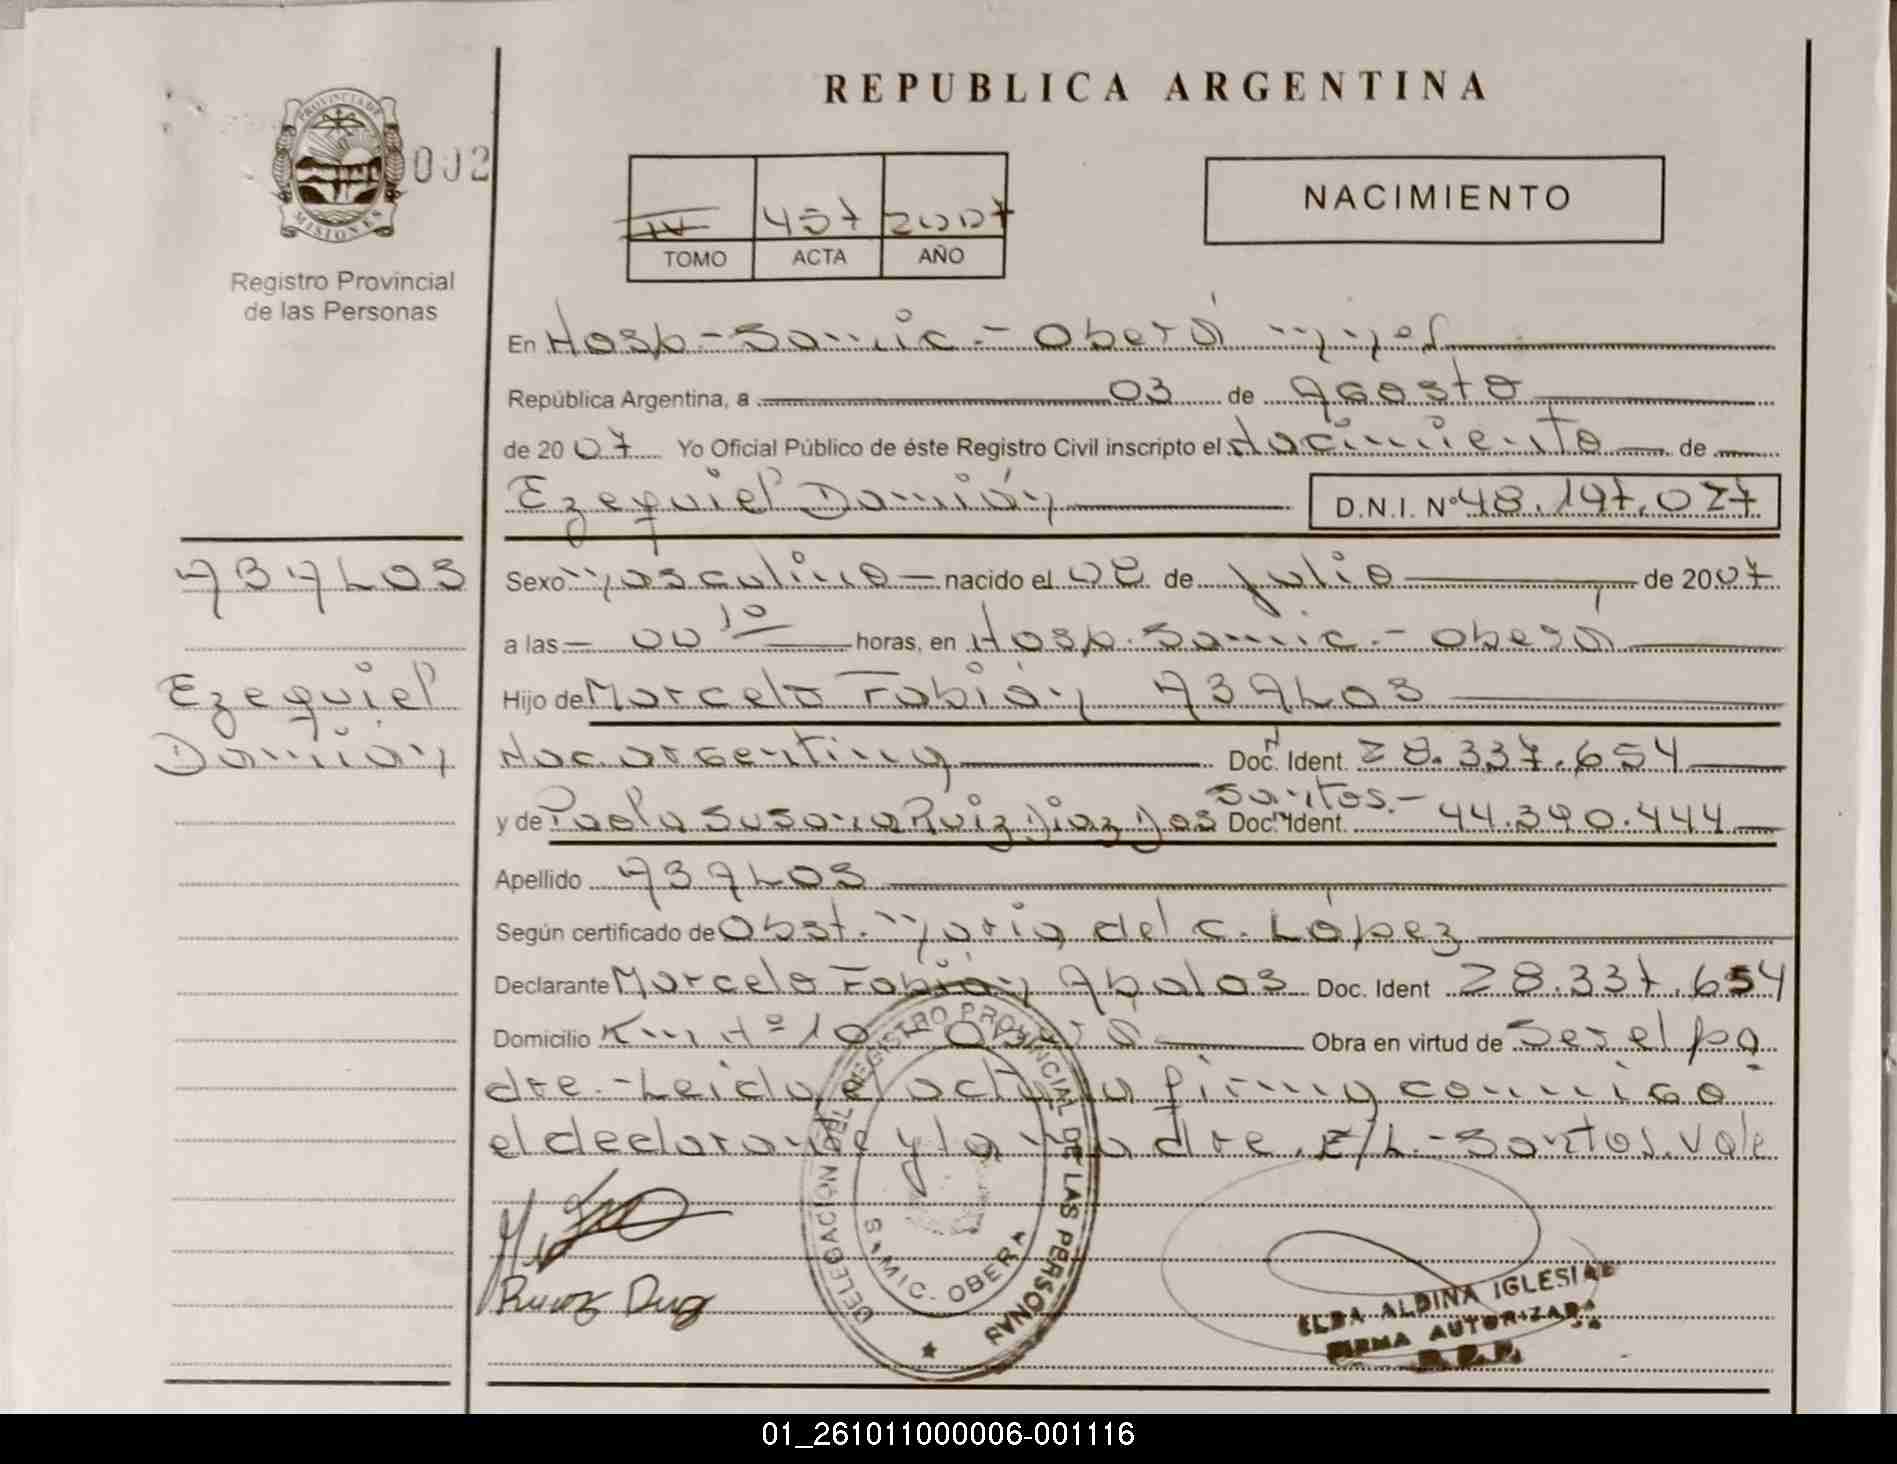 REPUBLICA ARGENTINA
PROVINCIA DE
MISIONES
002
Registro Provincial
de las Personas
IV 457 2007
TOMO ACTA AÑO
NACIMIENTO
En Hosp-Samic.- Oberá Mnes
República Argentina, a 03 de Agosto
de 2007 Yo Oficial Público de éste Registro Civil inscripto el Nacimiento de
Ezequiel Damián D.N.I. Nº 48.197.027
ABALOS
Ezequiel
Damián
Sexo Masculino nacido el 02 de Julio de 2007
a las 00 10 horas, en Hosp. Samic.- Oberá
Hijo de Marcelo Fabián ABALOS
Nac. argentina Doc. Ident. 28.337.654
Santos.-
y de Paola Susana Ruiz Diaz Dos Doc. Ident. 44.390.444
Apellido ABALOS
Según certificado de Obst. María del C. López
Declarante Marcelo Fabián Abalos Doc. Ident 28.337.654
Domicilio Km Nº 10 - Oberá Obra en virtud de Ser el pa
dre.- Leida el acta la firma conmigo
el declarante y la madre. E/L.- Santos. Vale
Ruiz Diaz
DELEGACION DEL REGISTRO PROVINCIAL DE LAS PERSONAS
SAMIC. OBERA
ELBA ALDINA IGLESIAS
FIRMA AUTORIZADA
R.P.P.
01_261011000006-001116